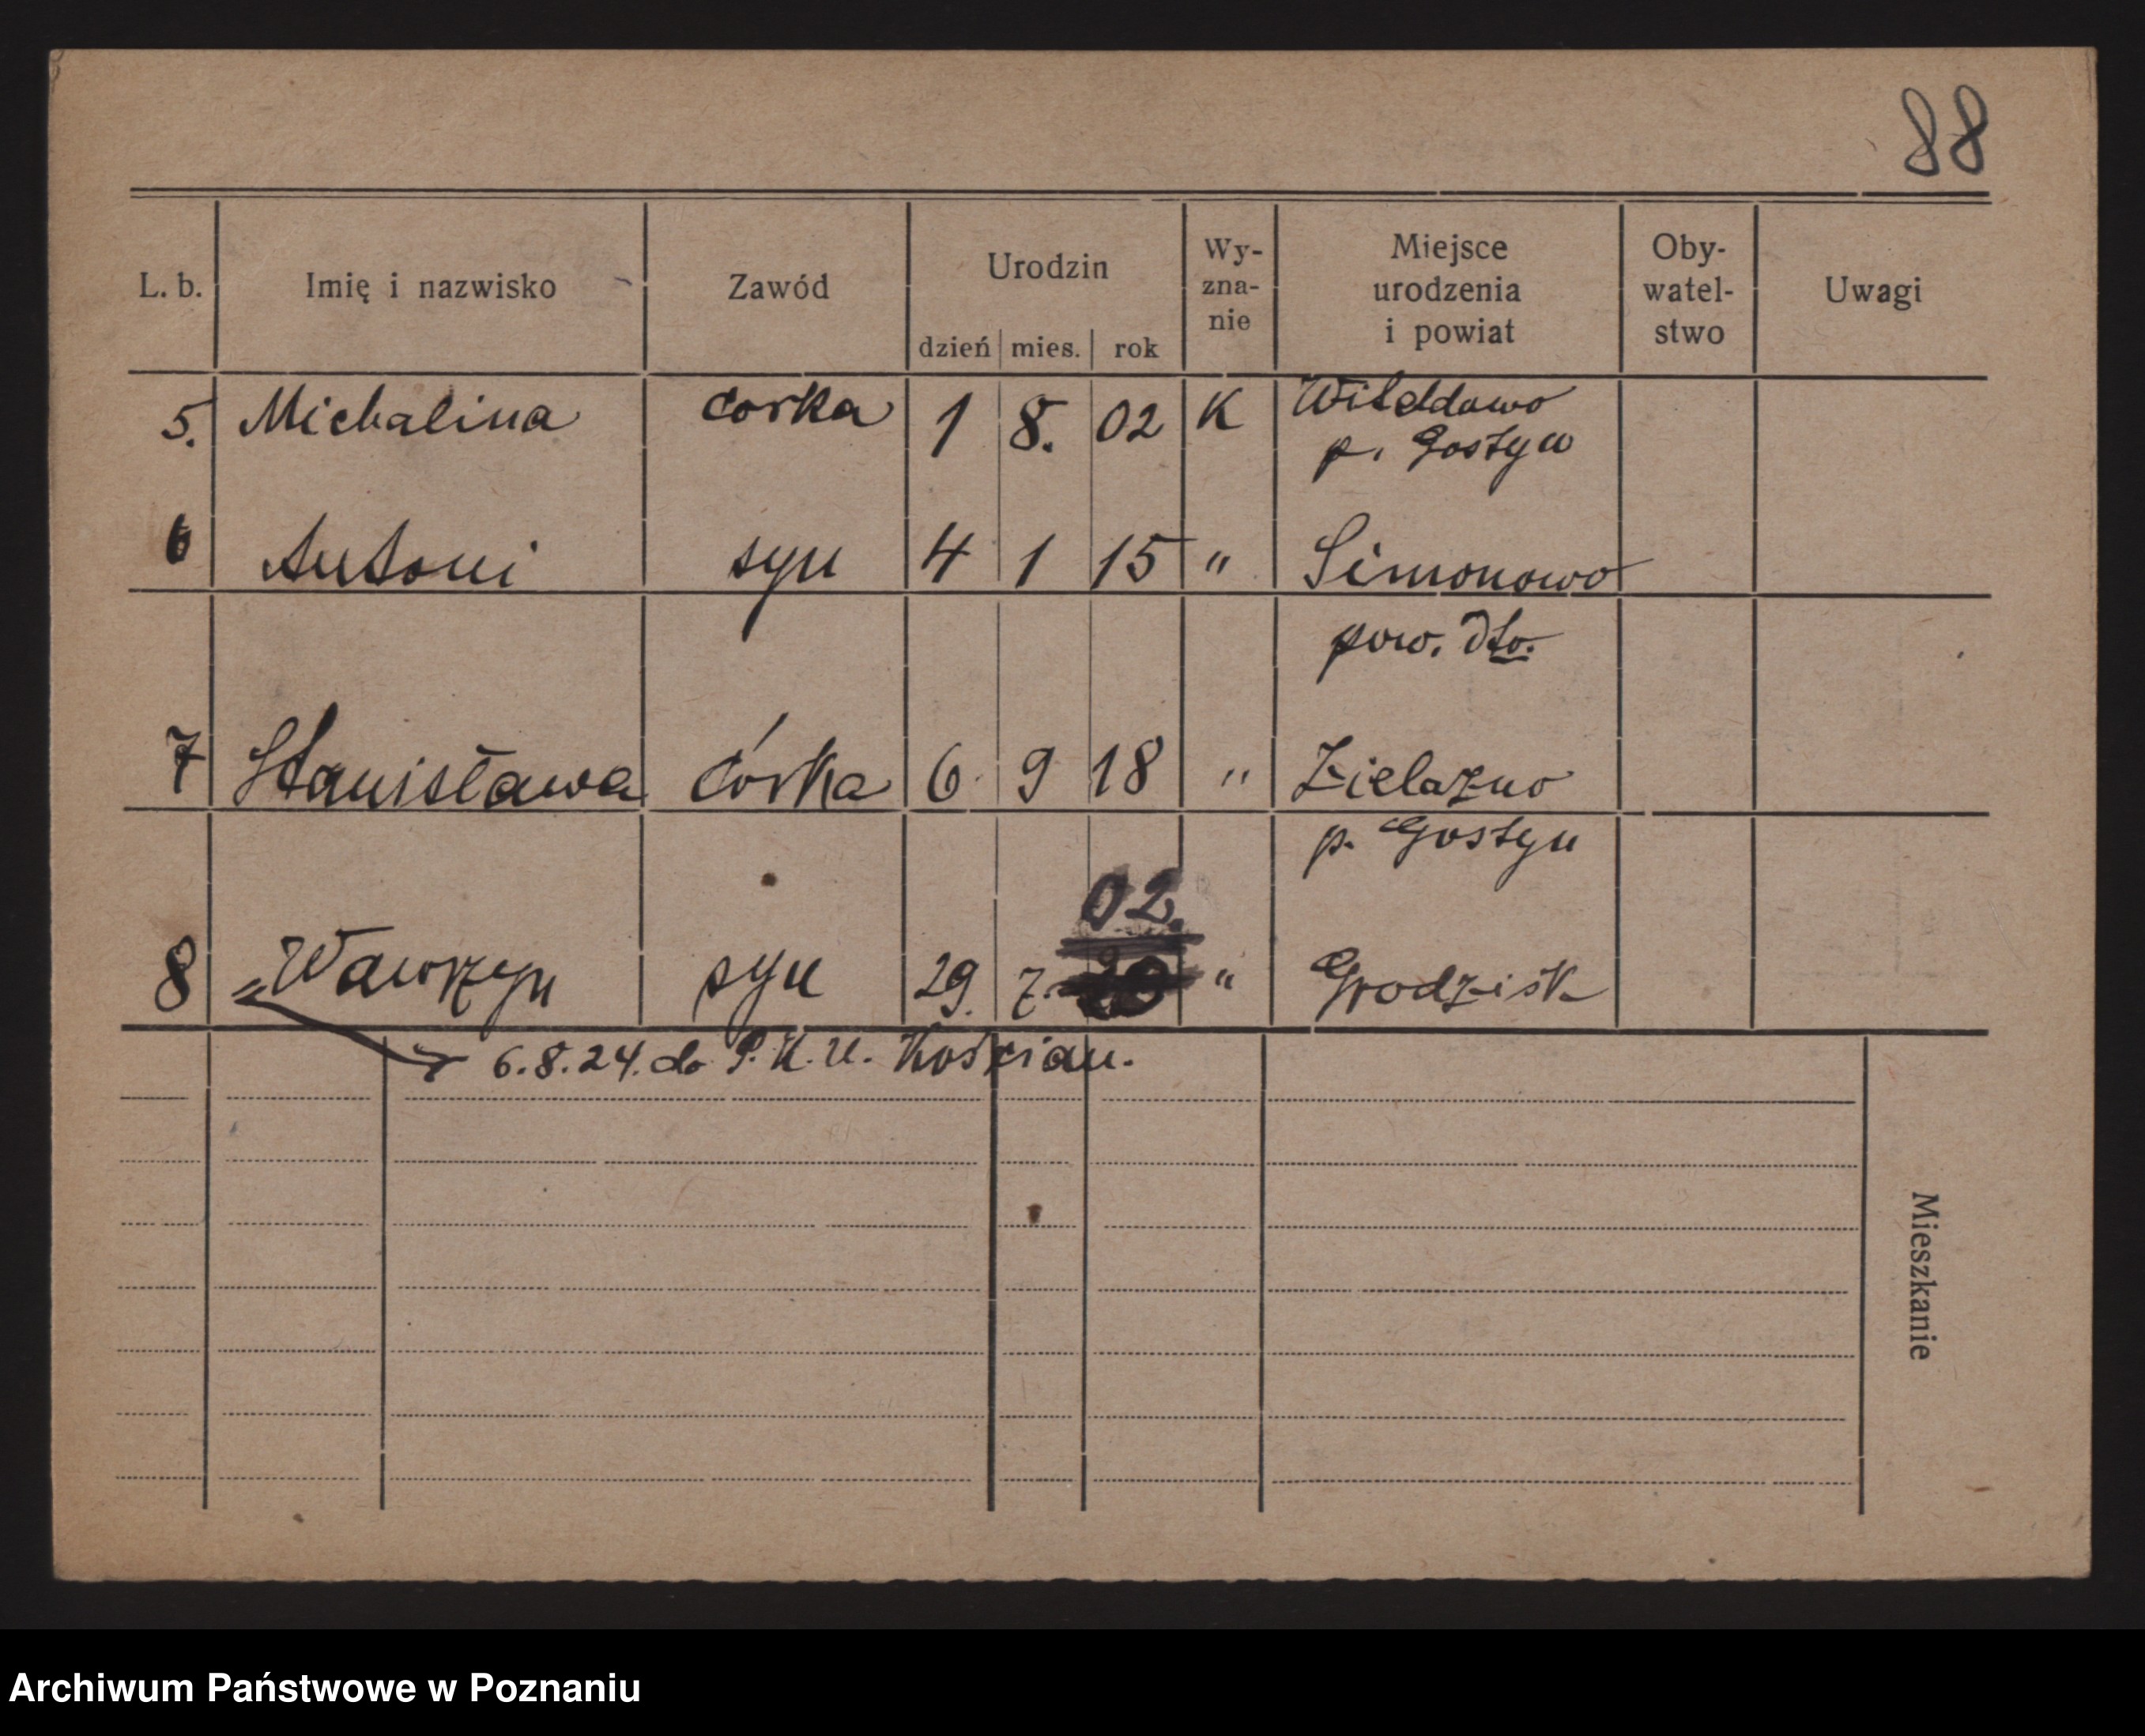 88
L. b. Imię i nazwisko Zawód Urodzin dzień mies. rok Wy-zna-nie Miejsce urodzenia i powiat Oby-watel-stwo Uwagi
5. Michalina corka 1 8. 02 K
p. Gostyn
6 Antoni syn 4 1 15 " Simonowo
pow. dto.
7 Stanisława córka 6 9 18 " Zielazno
p. Gostyn
02.
8 Wawrzyn syn 29. 7. " Grodzisk
6.8.24. do P.K.U. Kościan.
Mieszkanie
Archiwum Państwowe w Poznaniu